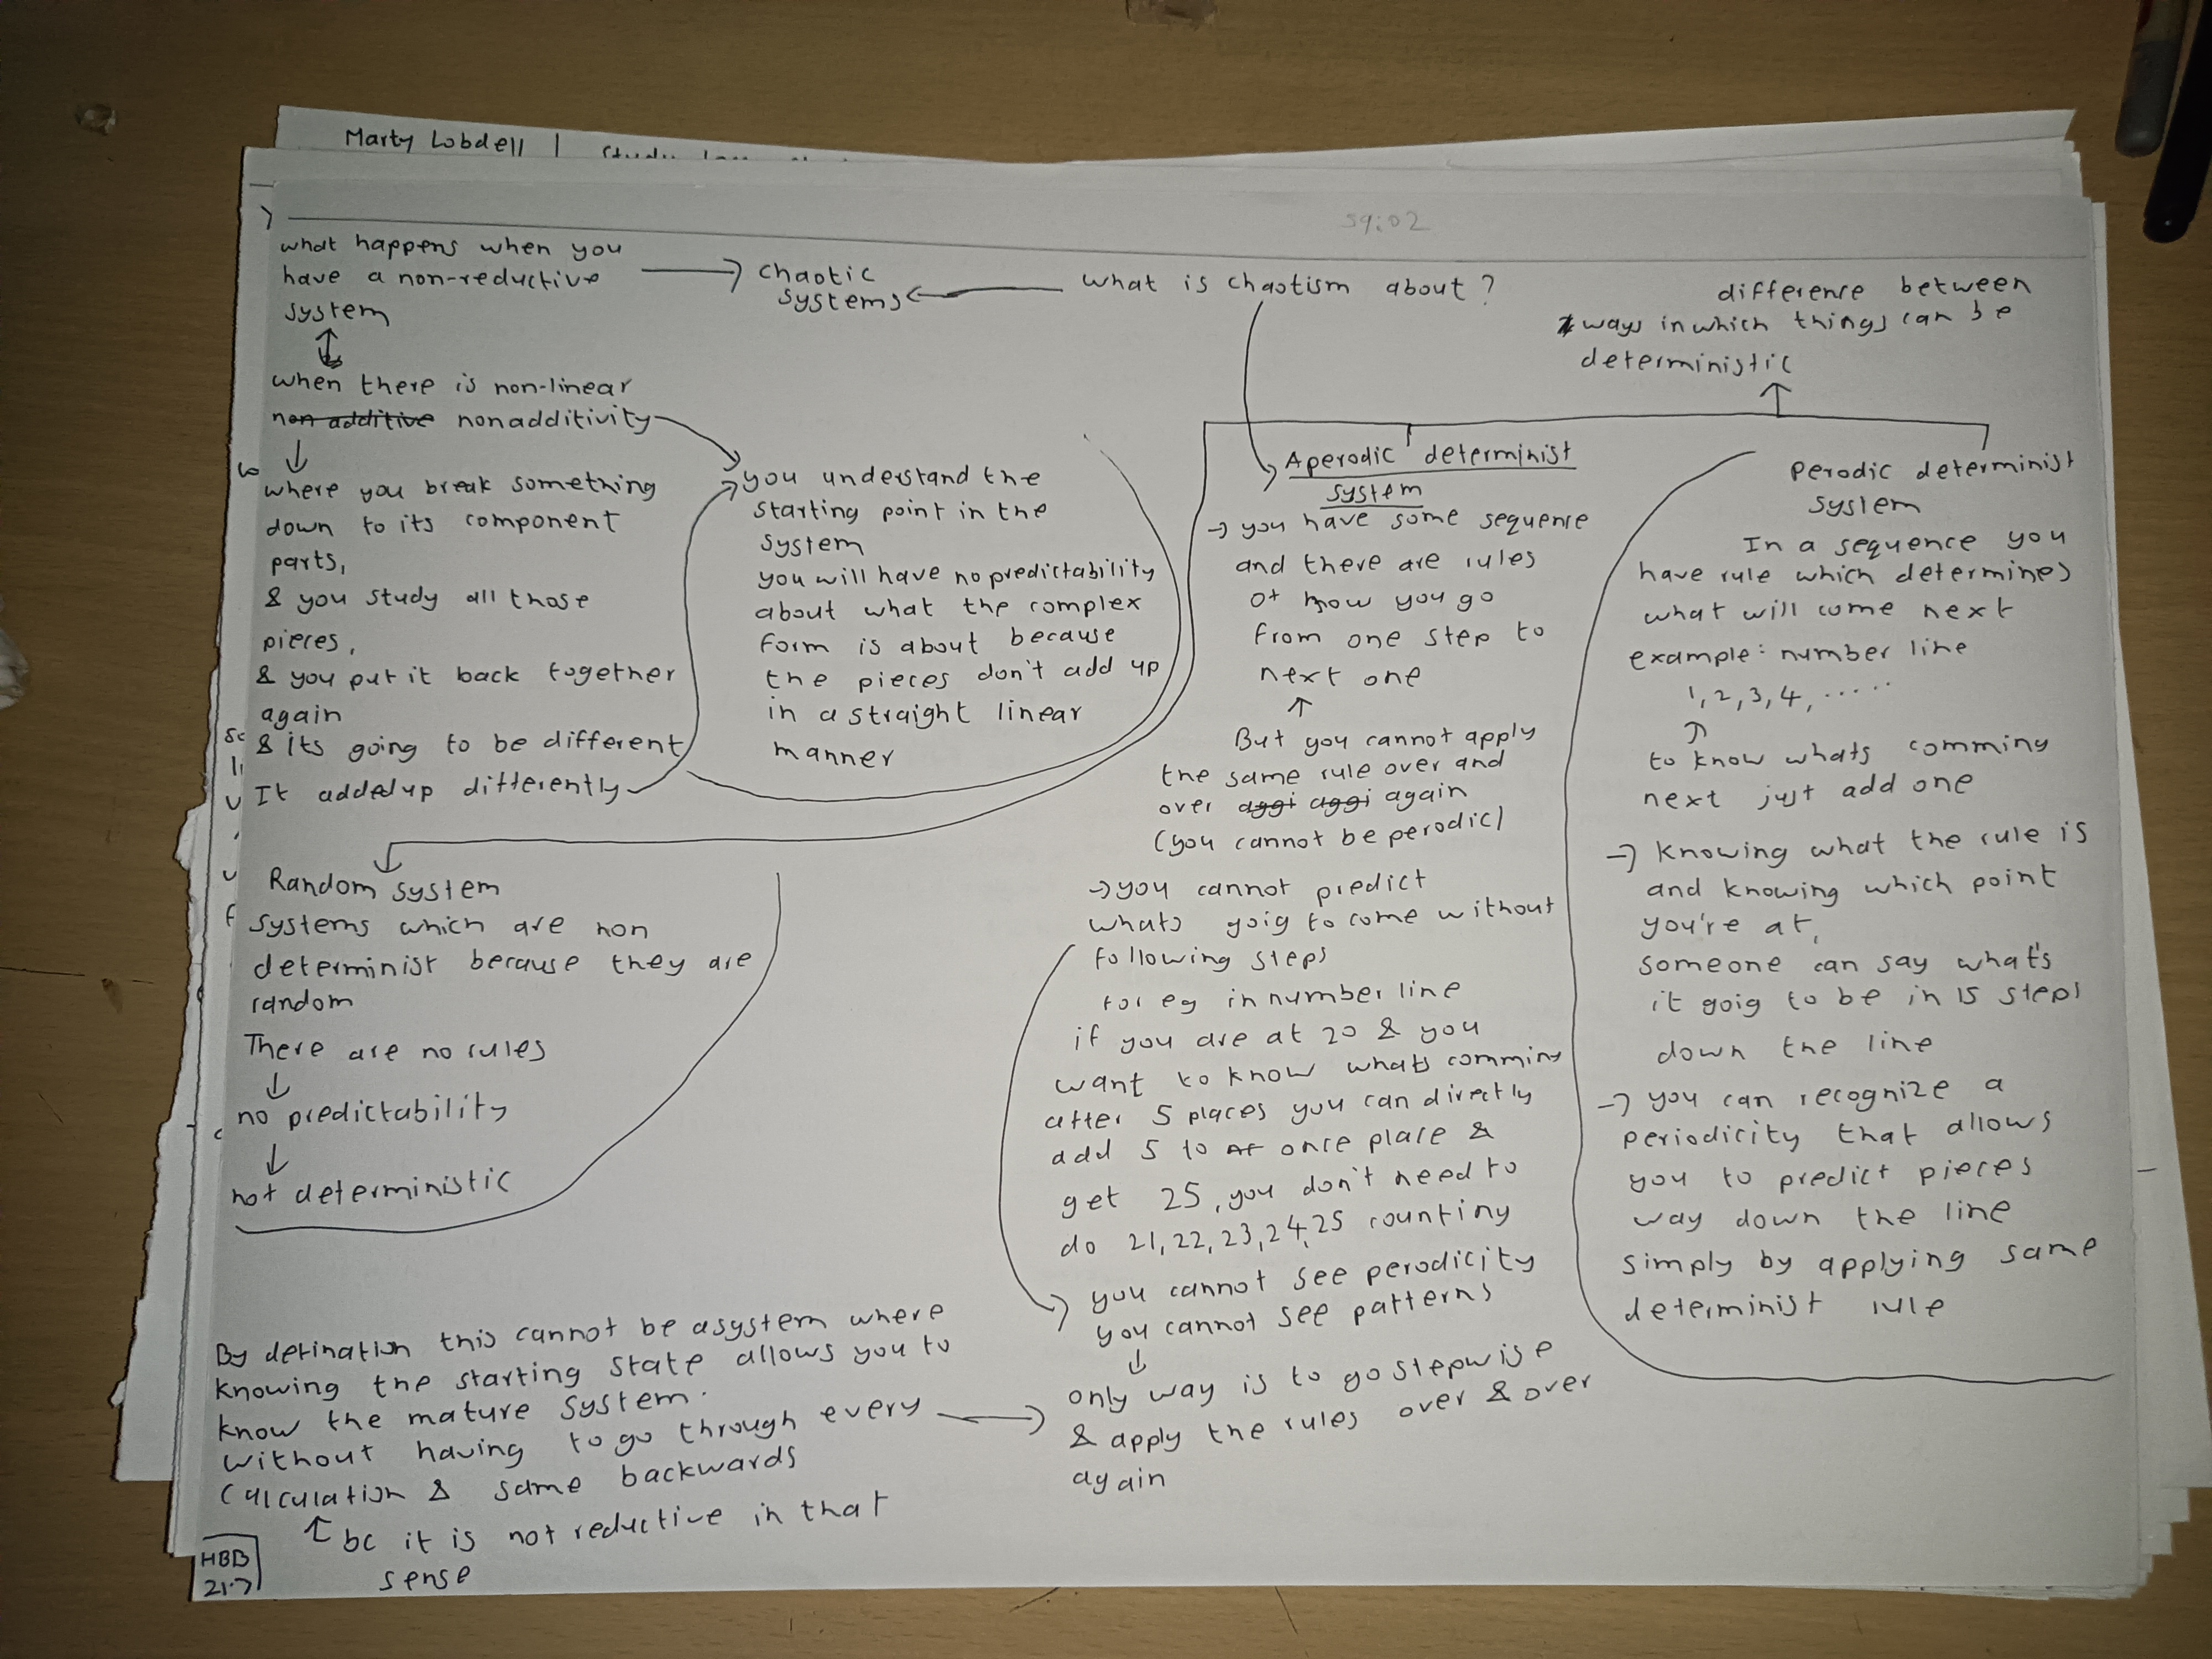 Marty Lobdell |
59:02
what happens when you
have a non-reductive
system
when there is non-linear
non additive nonadditivity
where you break something
down to its component
parts,
& you study all those
pieces,
& you put it back together
again
& its going to be different
It added up differently
chaotic
systems
what is chaotism about?
you understand the
starting point in the
system
you will have no predictability
about what the complex
form is about because
the pieces don't add up
in a straight linear
manner
difference between
ways in which things can be
deterministic
Aperodic determinist
system
→ you have some sequence
and there are rules
of how you go
from one step to
next one
But you cannot apply
the same rule over and
over aggi aggi again
(you cannot be perodic)
→ you cannot predict
whats goig to come without
following steps
for eg in number line
if you are at 20 & you
want to know whats comming
after 5 places you can directly
add 5 to once place &
get 25, you don't need to
do 21, 22, 23, 24, 25 counting
you cannot see perodicity
you cannot see patterns
only way is to go stepwise
& apply the rules over & over
again
perodic determinist
system
In a sequence you
have rule which determines
what will come next
example: number line
1, 2, 3, 4, .....
to know whats comming
next just add one
→ Knowing what the rule is
and knowing which point
you're at,
someone can say what's
it goig to be in 15 steps
down the line
→ you can recognize a
periodicity that allows
you to predict pieces
way down the line
simply by applying same
determinist rule
Random system
systems which are non
determinist because they are
random
There are no rules
no predictability
not deterministic
By defination this cannot be a system where
knowing the starting state allows you to
know the mature system.
without having to go through every
calculation & same backwards
bc it is not reductive in that
sense
HBB
21.7